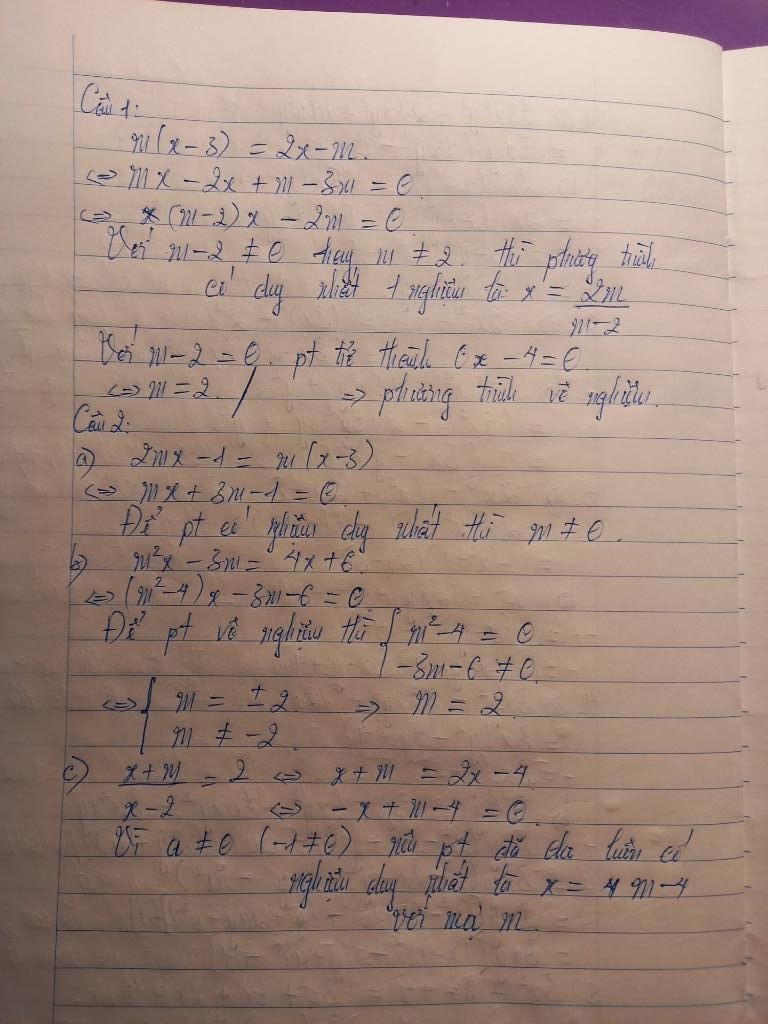 Câu 1:
m(x-3) = 2x-m.
<=> mx - 2x + m - 3m = 0
<=> (m-2)x - 2m = 0
Với m-2 ≠ 0 hay m ≠ 2. thì phương trình
có duy nhất 1 nghiệm là: x = 2m/(m-2)
Với m-2 = 0. pt trở thành 0x - 4 = 0.
<=> m = 2. / => phương trình vô nghiệm.
Câu 2:
a) 2mx - 1 = m(x-3)
<=> mx + 3m - 1 = 0
Để pt có nghiệm duy nhất thì m ≠ 0.
b) m²x - 3m = 4x + 6.
<=> (m²-4)x - 3m - 6 = 0
Để pt vô nghiệm thì { m²-4 = 0
-3m-6 ≠ 0.
<=> { m = ±2 => m = 2.
m ≠ -2
c) (x+m)/(x-2) = 2 <=> x+m = 2x-4
<=> -x+m-4 = 0
Vì a ≠ 0 (-1 ≠ 0) nên pt đã cho luôn có
nghiệm duy nhất là x = m-4
với mọi m.